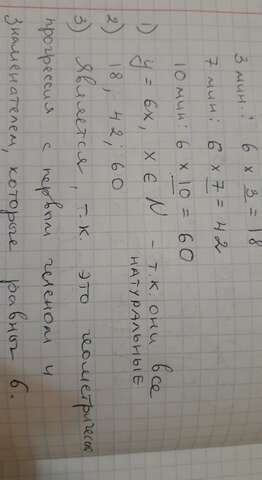 3 мин: 6 x 3 = 18
7 мин: 6 x 7 = 42
10 мин: 6 x 10 = 60
1) y = 6x, x ∈ N - т.к. они все
натуральные
2) 18; 42; 60
3) Является, т.к. это геометрическ
прогрессия с первым членом и
знаменателем, которые равны 6.